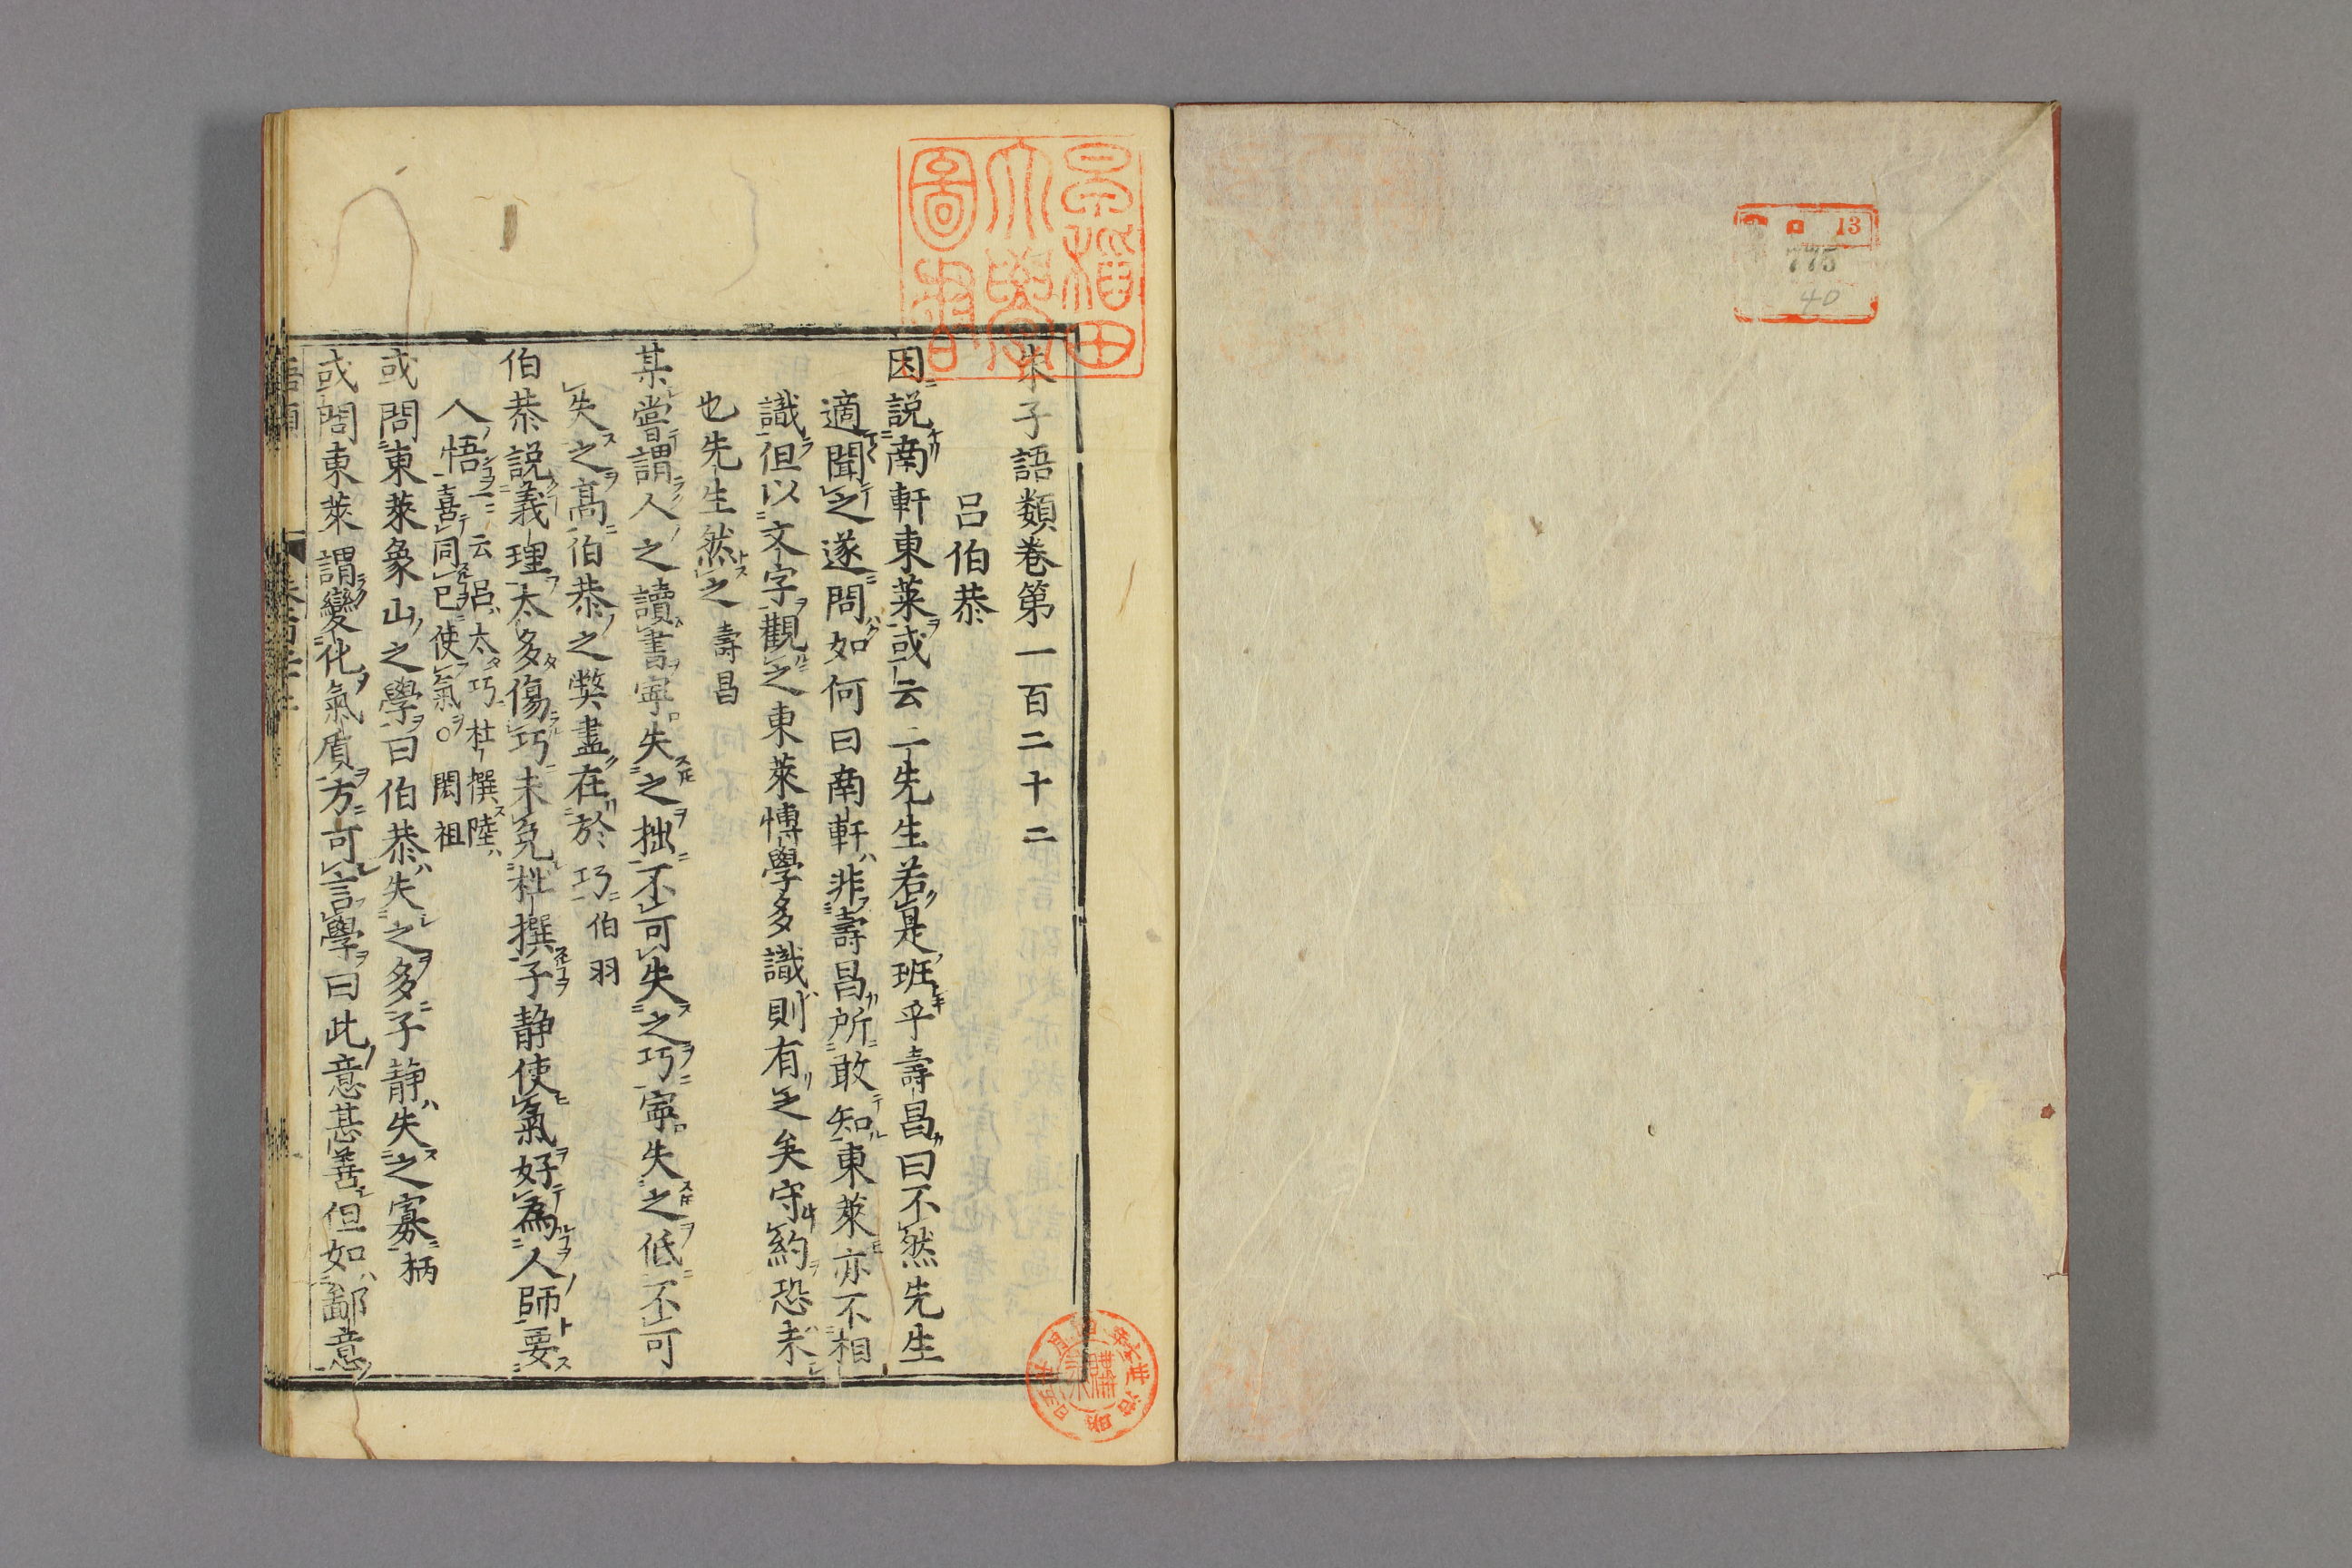 13
775
40
早稲田
大學
圖書
朱子語類卷第一百二十二
呂伯恭
因説南軒東萊或云二先生若是班乎壽昌曰不然先生
適聞之遂問如何曰南軒非壽昌所敢知東萊亦不相
識但以文字觀之東萊博學多識則有之矣守約恐未
也先生然之壽昌
某嘗謂人之讀書寧失之拙不可失之巧寧失之低不可
失之髙伯恭之弊盡在於巧伯羽
伯恭説義理太多傷巧未免杜撰子静使氣好為人師要
人悟一云呂太巧杜撰陸
喜同己使氣○閎祖
或問東萊象山之學曰伯恭失之多子静失之寡柄
或問東萊謂變化氣质方可言學曰此意甚善但如鄙意